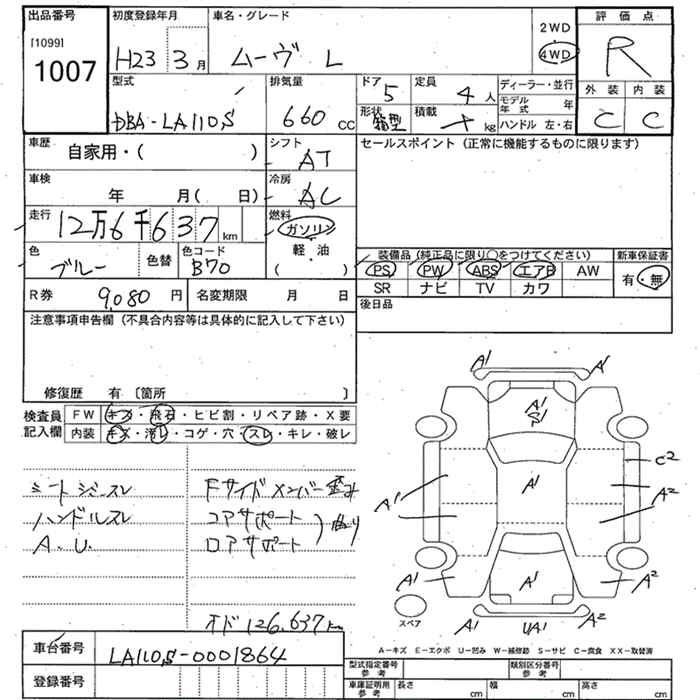 出品番号
[1099]
1007
初度登録年月
H23 3月
車名・グレード
ムーヴ L
2WD
4WD
評価点
R
外装 内装
C C
型式
DBA-LA110S
排気量
660 cc
ドア
5
定員
4人
形状
箱型
積載
kg
ディーラー・並行
モデル年式 年
ハンドル 左・右
車歴
自家用・( )
シフト
AT
セールスポイント(正常に機能するものに限ります)
車検
年 月(日)
冷房
AC
走行
12万6千637km
燃料
ガソリン
軽・油
( )
色
ブルー
色替
色コード
B70
装備品(純正品に限り○をつけてください)
新車保証書
PS PW ABS エアB AW
SR ナビ TV カワ
有・無
R券 9,080円
名変期限 月 日
後日品
注意事項申告欄(不具合内容等は具体的に記入して下さい)
修復歴 有 〔箇所 〕
検査員記入欄
FW キズ・飛石・ヒビ割・リペア跡・X要
内装 キズ・汚レ・コゲ・穴・スレ・キレ・破レ
シートシミスレ
ハンドルスレ
A.U.
Fサイドメンバー
コアサポート
ロアサポート
曲り
オド 126,637km
A1 A1
A1
S1
A1
A1
C2
A2
A1
A1
A2
スペア
A1 UA1 A2
A-キズ E-エクボ U-凹み W-補修跡 S-サビ C-腐食 XX-取替済
車台番号
LA110S-0001864
登録番号
型式指定番号 参考
類別区分番号 参考
車庫証明用 参考
長さ cm
幅 cm
高さ cm